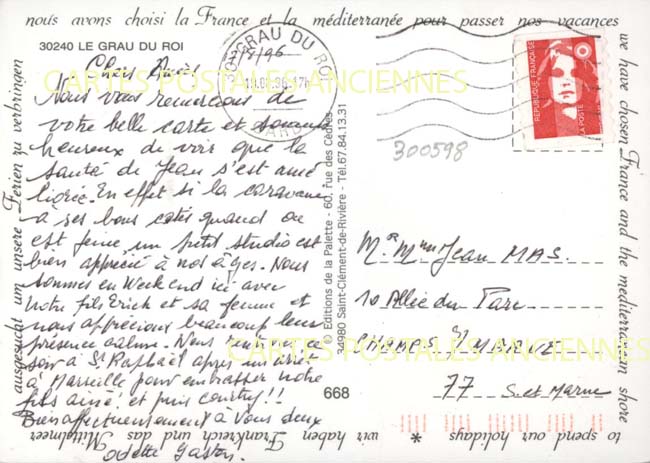 nous avons choisi la France et la méditerranée pour passer nos vacances
we have chosen France and the mediterranean shore
to spend our holidays
*
wir haben Frankreich und das Mittelmeer
ausgesucht um unsere Ferien zu verbringen
30240 LE GRAU DU ROI
CARTES POSTALES ANCIENNES
GRAU DU ROI
GARD
REPUBLIQUE FRANÇAISE
LA POSTE
300598
Chers Amis
Nous vous remercions de
votre belle carte et sommes
heureux de voir que la
santé de Jean s'est amé
liorée. En effet si la caravane
a ses bons cotés quand on
est jeune un petit studio est
bien apprécié à nos âges. Nous
sommes en Weekend ici avec
notre fils Erick et sa femme et
nous apprécions beaucoup leur
présence calme. Nous rentrons ce
soir à St Raphaël après un arrêt
à Marseille pour embrasser notre
fils ainé! et puis !!
Bien affectueusement à Vous deux
Odette Gaston.
© Editions de la Palette - 60, rue des Cèdres
34980 Saint-Clément-de-Rivière - Tél. 67.84.13.31
668
Mr Mme Jean MAS.
10 Allée du Parc
CHAMPS S/ MARNE
77 S. et Marne
CARTES POSTALES ANCIENNES